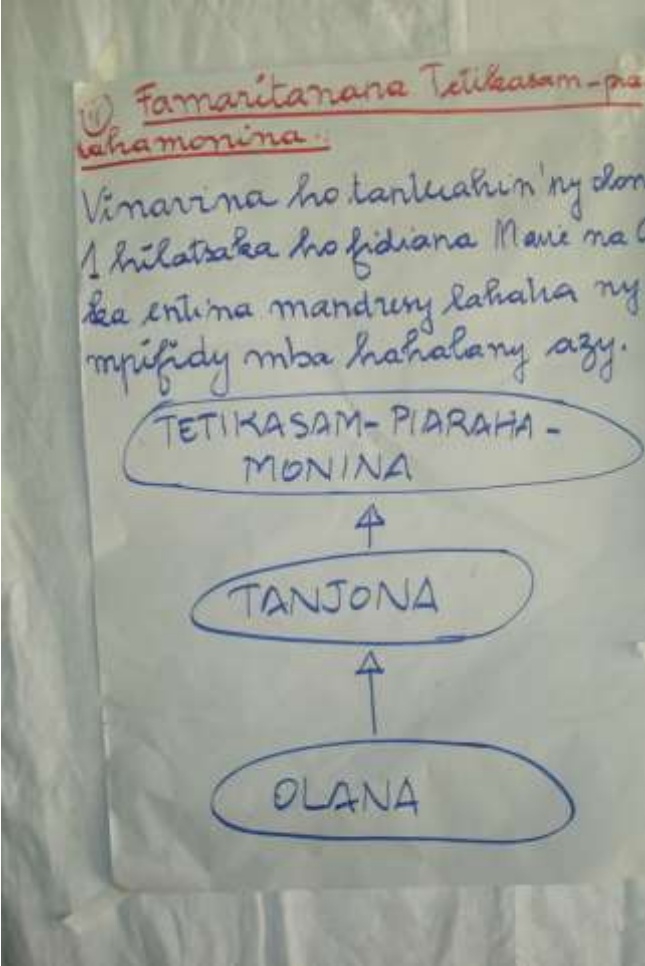 Famaritanana Tetikasam-pia
rahamonina.
Vinavina ho tanterahin'ny olon
1 hilatsaka ho fidiana Maire na
ka entina mandresy lahatra ny
mpifidy mba hahalany azy.
TETIKASAM-PIARAHA-
MONINA
TANJONA
OLANA